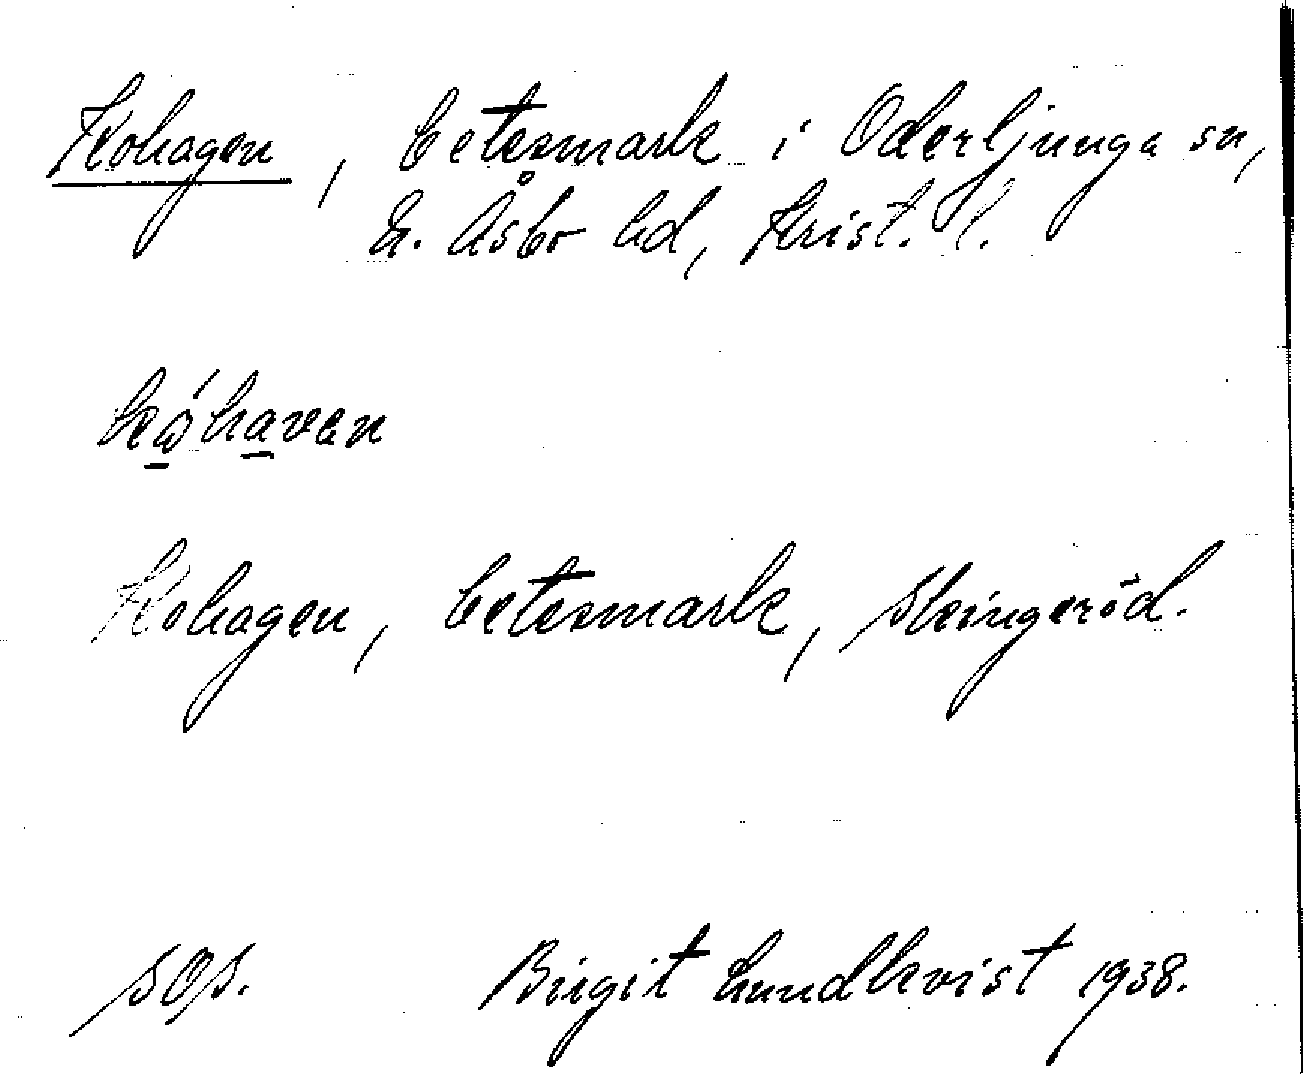 Kohagen, betesmark i Oderljunga sn,
N. Åsbo hd, Krist. l.
kǫ́havan
Kohagen, betesmark, Skingeröd.
SOS. Birgit Lundkvist 1938.